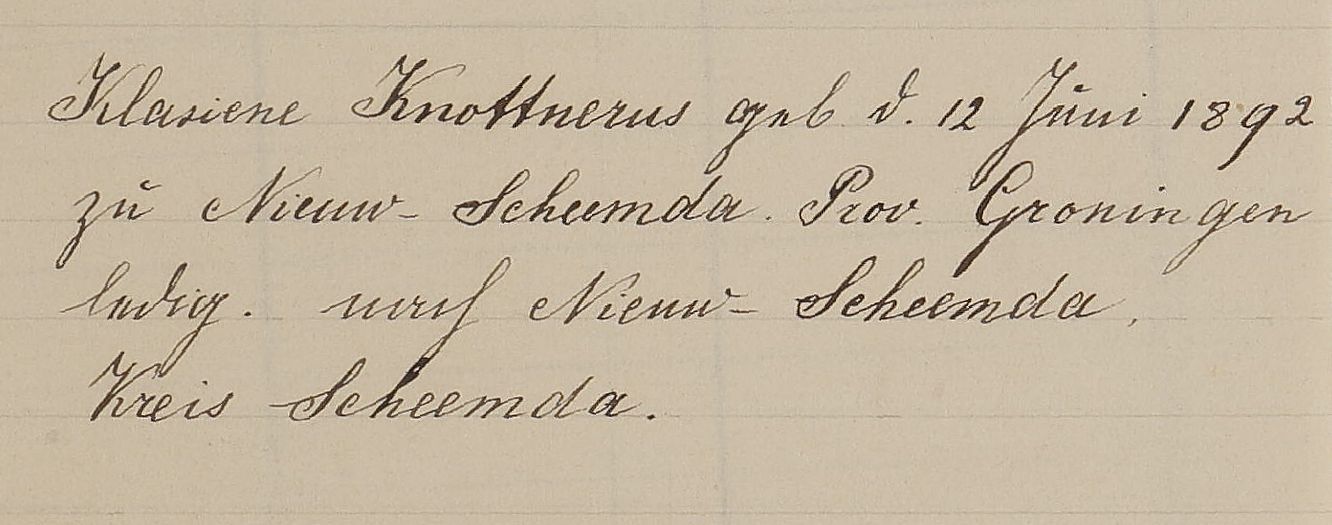 Klasiene Knottnerus geb d. 12 Juni 1892
zu Nieuw-Scheemda. Prov. Groningen
ledig. nach Nieuw-Scheemda.
Kreis Scheemda.